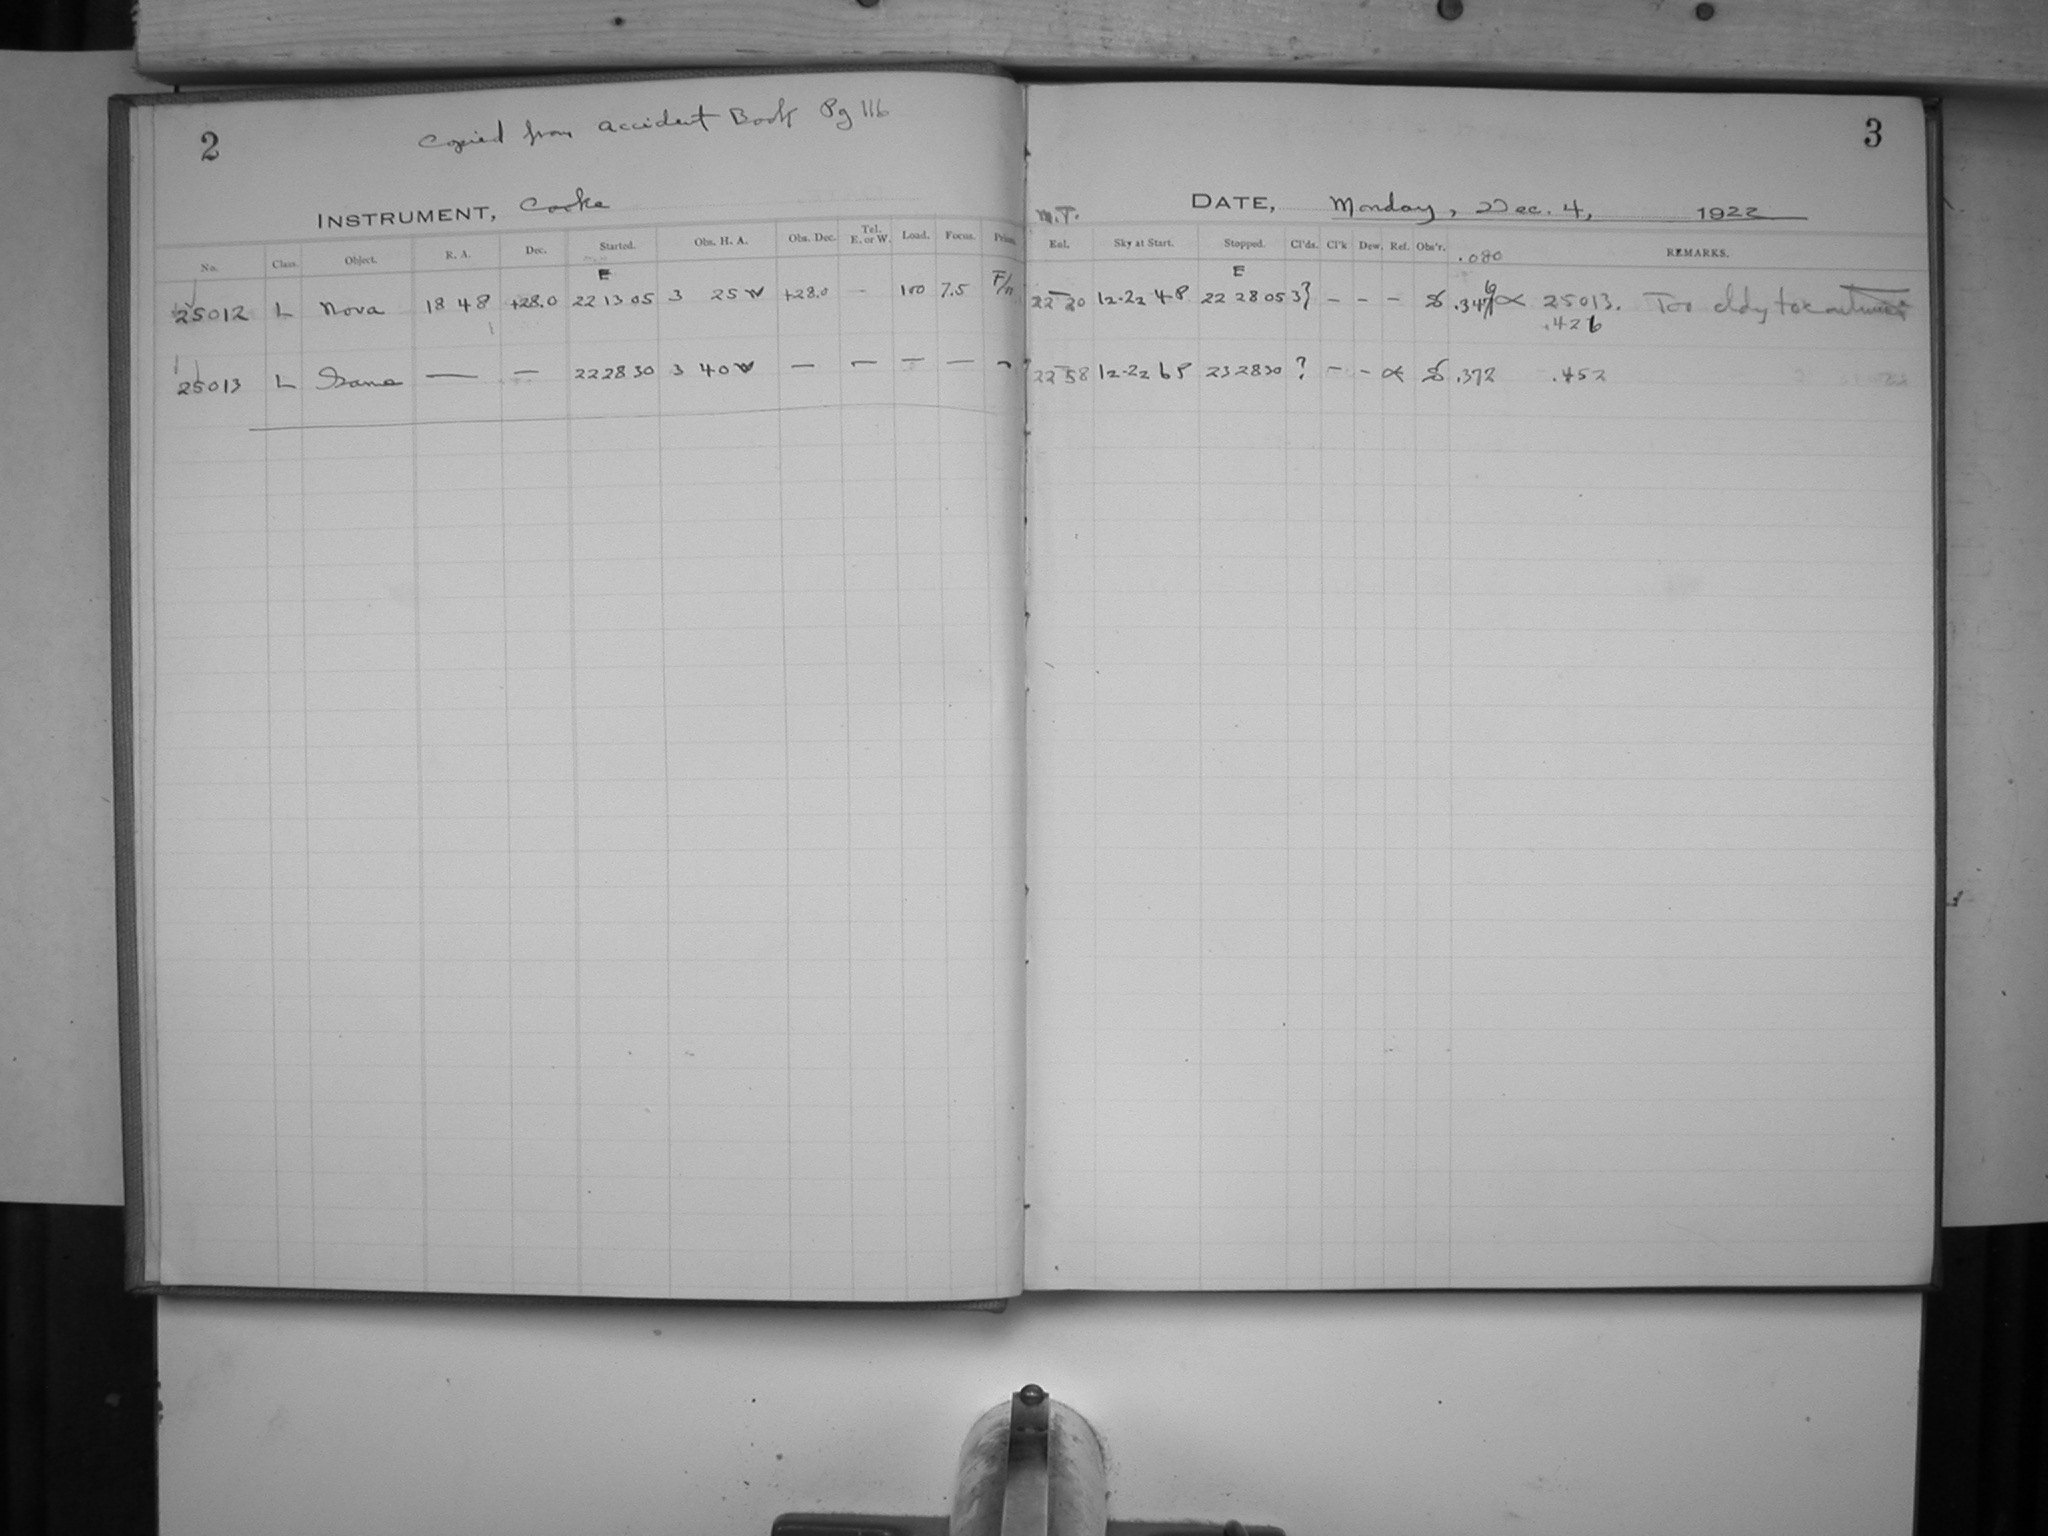 2
Copied from accident Book Pg 116
INSTRUMENT, Cooke
No. Class. Object. R. A. Dec. Started. Obs. H. A. Obs. Dec. Tel. E. or W. Load. Focus. Prism.
E
25012 L Nova 18 48 +28.0 22 13 05 3 25 W +28.0 – 100 7.5 F/n
25013 L Same — — 22 28 30 3 40 W — — — — –
3
DATE, Monday, Dec. 4, 1922
M.T.
Eal. Sky at Start. Stopped. Cl'ds. Cl'k Dew. Ref. Obs'r. .080 REMARKS.
E
22 20 12-22 4 P 22 28 05 3? – – – .347 ∝ 25013. Too cldy to
.426
22 58 12-22 6 P 23 28 30 ? – – ∝ .372 .452